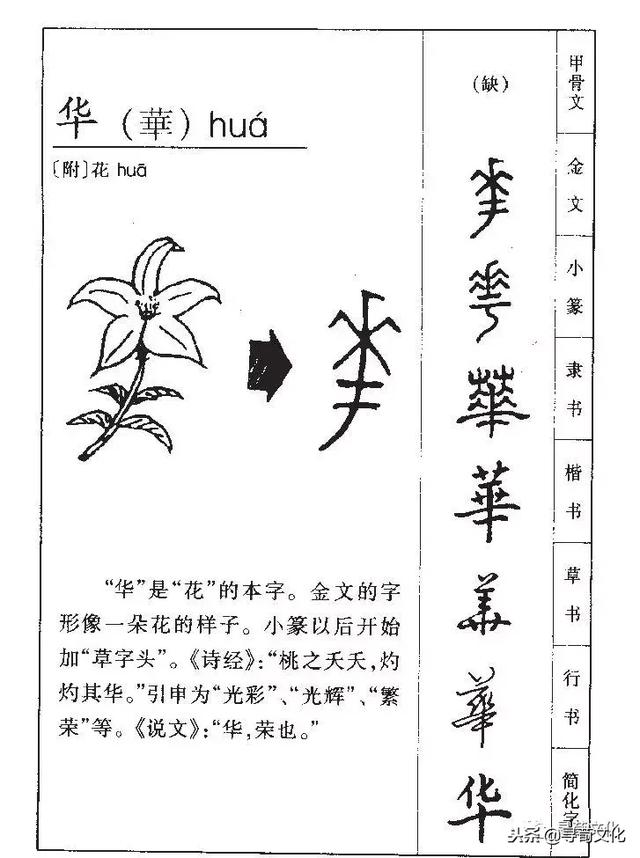 华（華）huá
〔附〕花 huā
“华”是“花”的本字。金文的字
形像一朵花的样子。小篆以后开始
加“草字头”。《诗经》：“桃之夭夭，灼
灼其华。”引申为“光彩”、“光辉”、“繁
荣”等。《说文》：“华，荣也。”
（缺）
華
華
華
華
華
華
华
甲骨文
金文
小篆
隶书
楷书
草书
行书
简化字
头条@寻奇文化